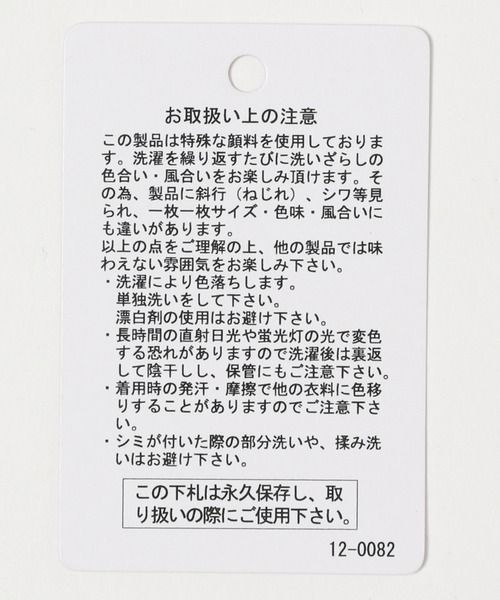 お取扱い上の注意
この製品は特殊な顔料を使用しておりま
す。洗濯を繰り返すたびに洗いざらしの
色合い・風合いをお楽しみ頂けます。そ
の為、製品に斜行（ねじれ）、シワ等見
られ、一枚一枚サイズ・色味・風合いに
も違いがあります。
以上の点をご理解の上、他の製品では味
わえない雰囲気をお楽しみ下さい。
・洗濯により色落ちします。
単独洗いをして下さい。
漂白剤の使用はお避け下さい。
・長時間の直射日光や蛍光灯の光で変色
する恐れがありますので洗濯後は裏返
して陰干しし、保管にもご注意下さい。
・着用時の発汗・摩擦で他の衣料に色移
りすることがありますのでご注意下さ
い。
・シミが付いた際の部分洗いや、揉み洗
いはお避け下さい。
この下札は永久保存し、取
り扱いの際にご使用下さい。
12-0082